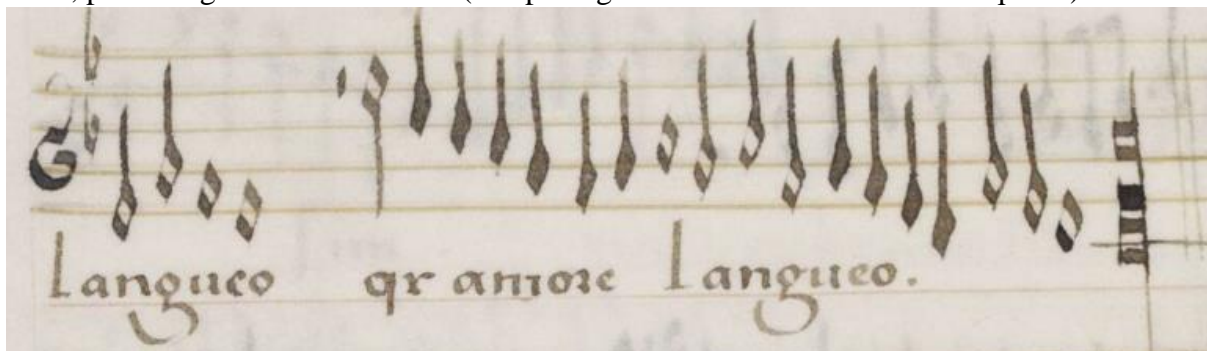 Langueo qr amore Langueo.